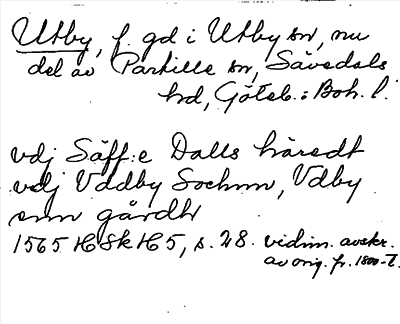 Utby, f. gd i Utby sn, nu
del av Partille sn, Sävedals
hd, Göteb. o. Boh. l.
vdj Säff:e Dalls häredt
vdj Vddby Sochnn, Vdby
enn gårdh
1565 HSkH 5, s. 28. vidim. avskr.
av orig. fr. 1800-t.